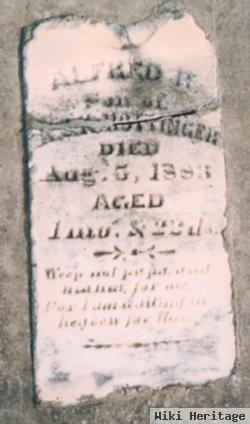 ALFRED
son of
HOTTINGER
DIED
Aug. 5, 1883
AGED
1 mo. & 22 ds.
Weep not papa and
mama for me,
For I am waiting in
heaven for thee.
Wiki Heritage